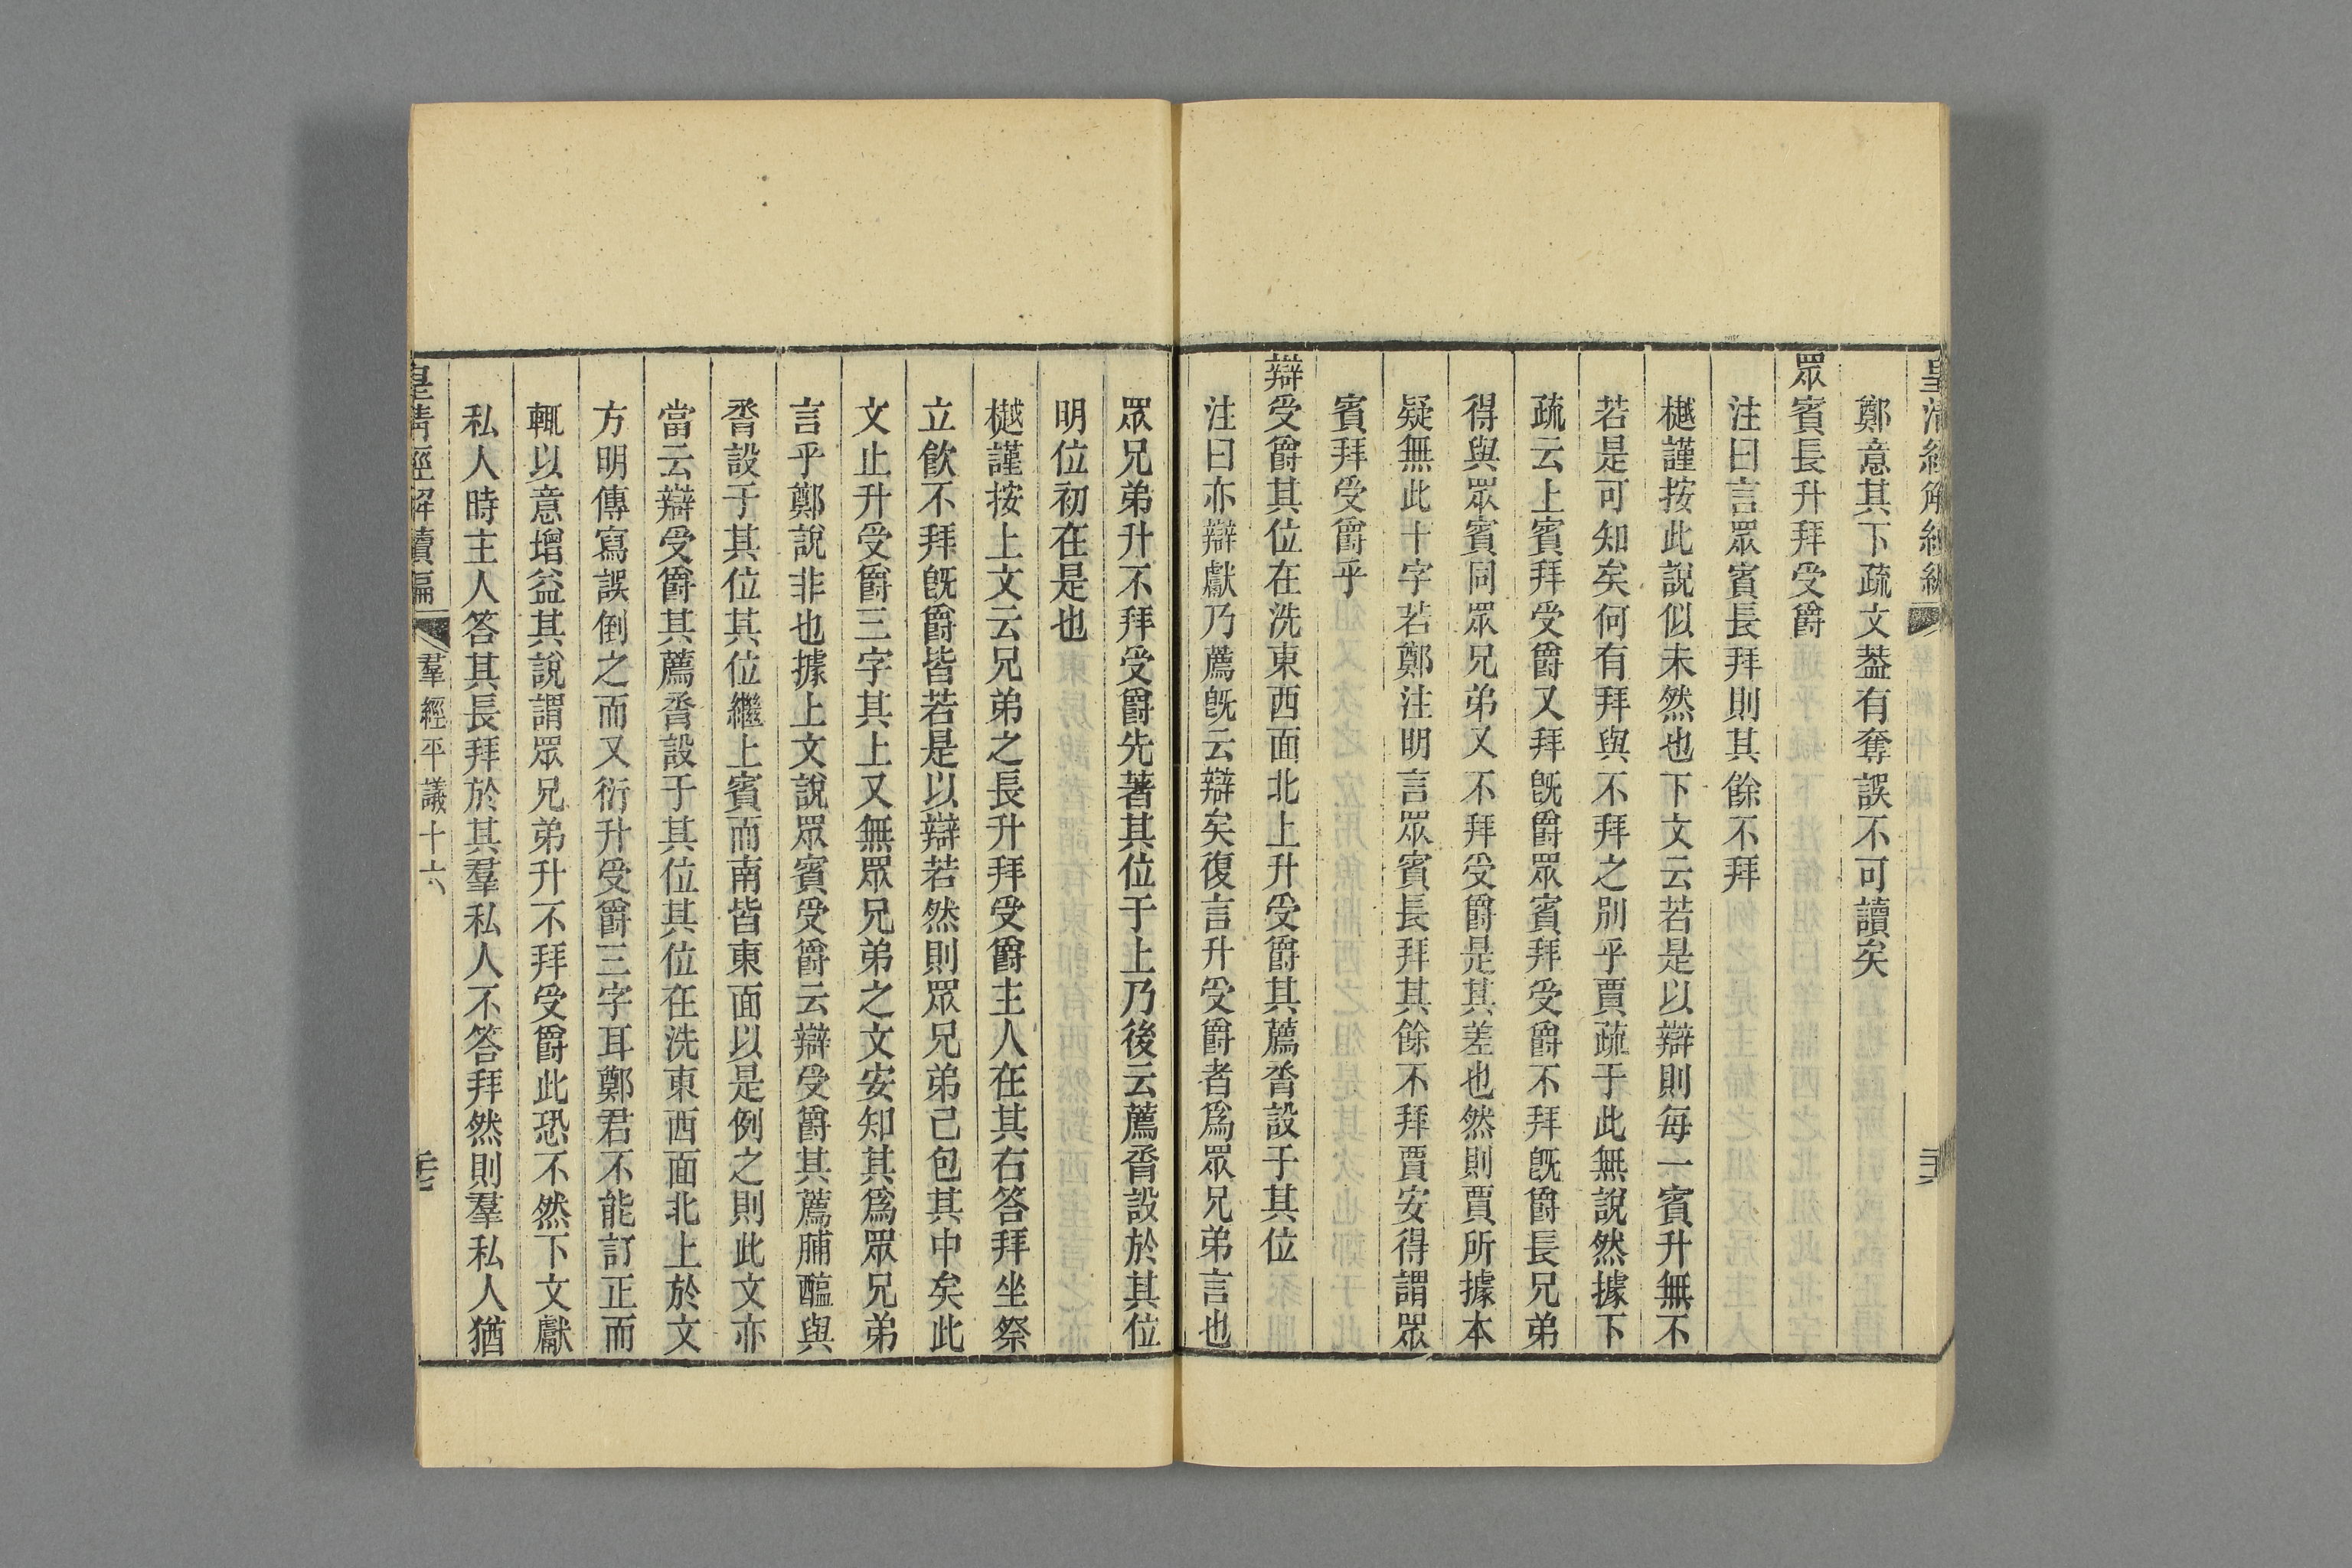 鄭意其下疏文葢有奪誤不可讀矣
眾賓長升拜受爵
注曰言眾賓長拜則其餘不拜
樾謹按此說似未然也下文云若是以辯則每一賓升無不
若是可知矣何有拜與不拜之別乎賈疏于此無說然據下
疏云上賓拜受爵又拜旣爵眾賓拜受爵不拜旣爵長兄弟
得與眾賓同眾兄弟又不拜受爵是其差也然則賈所據本
疑無此十字若鄭注明言眾賓長拜其餘不拜賈安得謂眾
賓拜受爵乎
辯受爵其位在洗東西面北上升受爵其薦脀設于其位
注曰亦辯獻乃薦旣云辯矣復言升受爵者爲眾兄弟言也
眾兄弟升不拜受爵先著其位于上乃後云薦脀設於其位
明位初在是也
樾謹按上文云兄弟之長升拜受爵主人在其右答拜坐祭
立飮不拜旣爵皆若是以辯若然則眾兄弟已包其中矣此
文止升受爵三字其上又無眾兄弟之文安知其爲眾兄弟
言乎鄭說非也據上文說眾賓受爵云辯受爵其薦脯醢與
脀設于其位其位繼上賓而南皆東面以是例之則此文亦
當云辯受爵其薦脀設于其位其位在洗東西面北上於文
方明傳寫誤倒之而又衍升受爵三字耳鄭君不能訂正而
輒以意增益其說謂眾兄弟升不拜受爵此恐不然下文獻
私人時主人答其長拜於其羣私人不答拜然則羣私人猶
皇淸經解續編
羣經平議十六